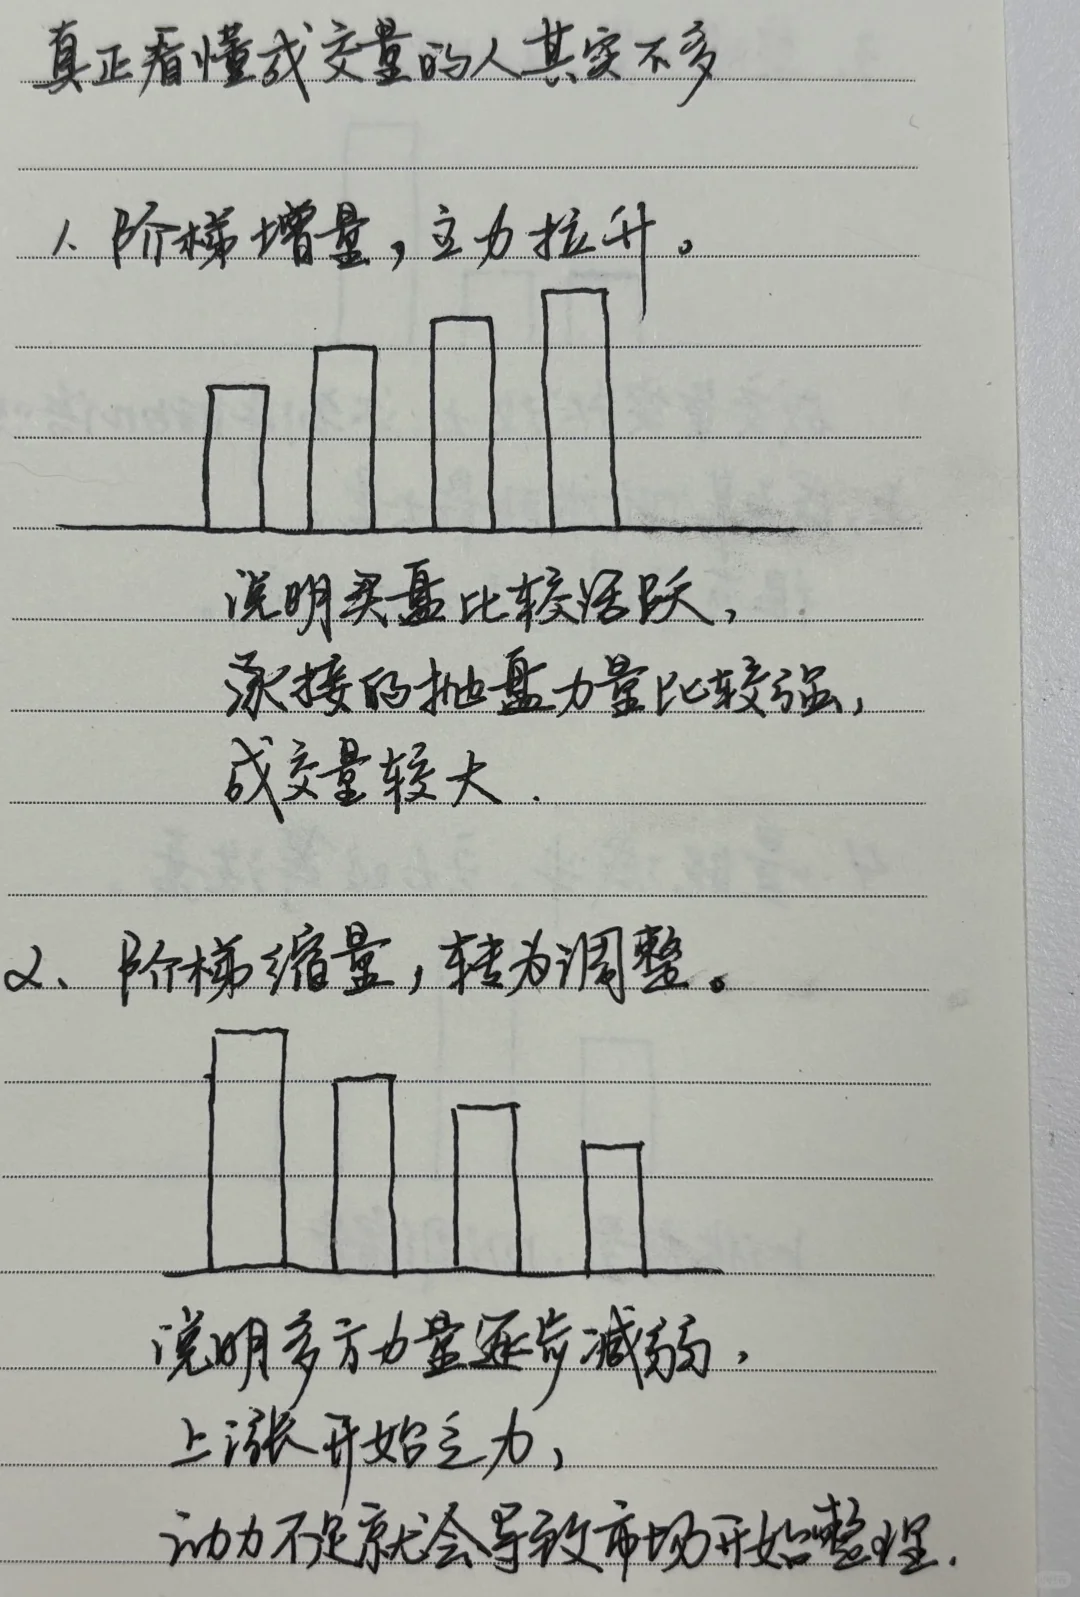 真正看懂成交量的人其实不多
1、阶梯增量，主力拉升。
说明买盘比较活跃，
承接的抛盘力量比较强，
成交量较大.
2、阶梯缩量，转为调整。
说明多方力量逐步减弱，
上涨开始乏力，
动力不足就会导致市场开始整理.